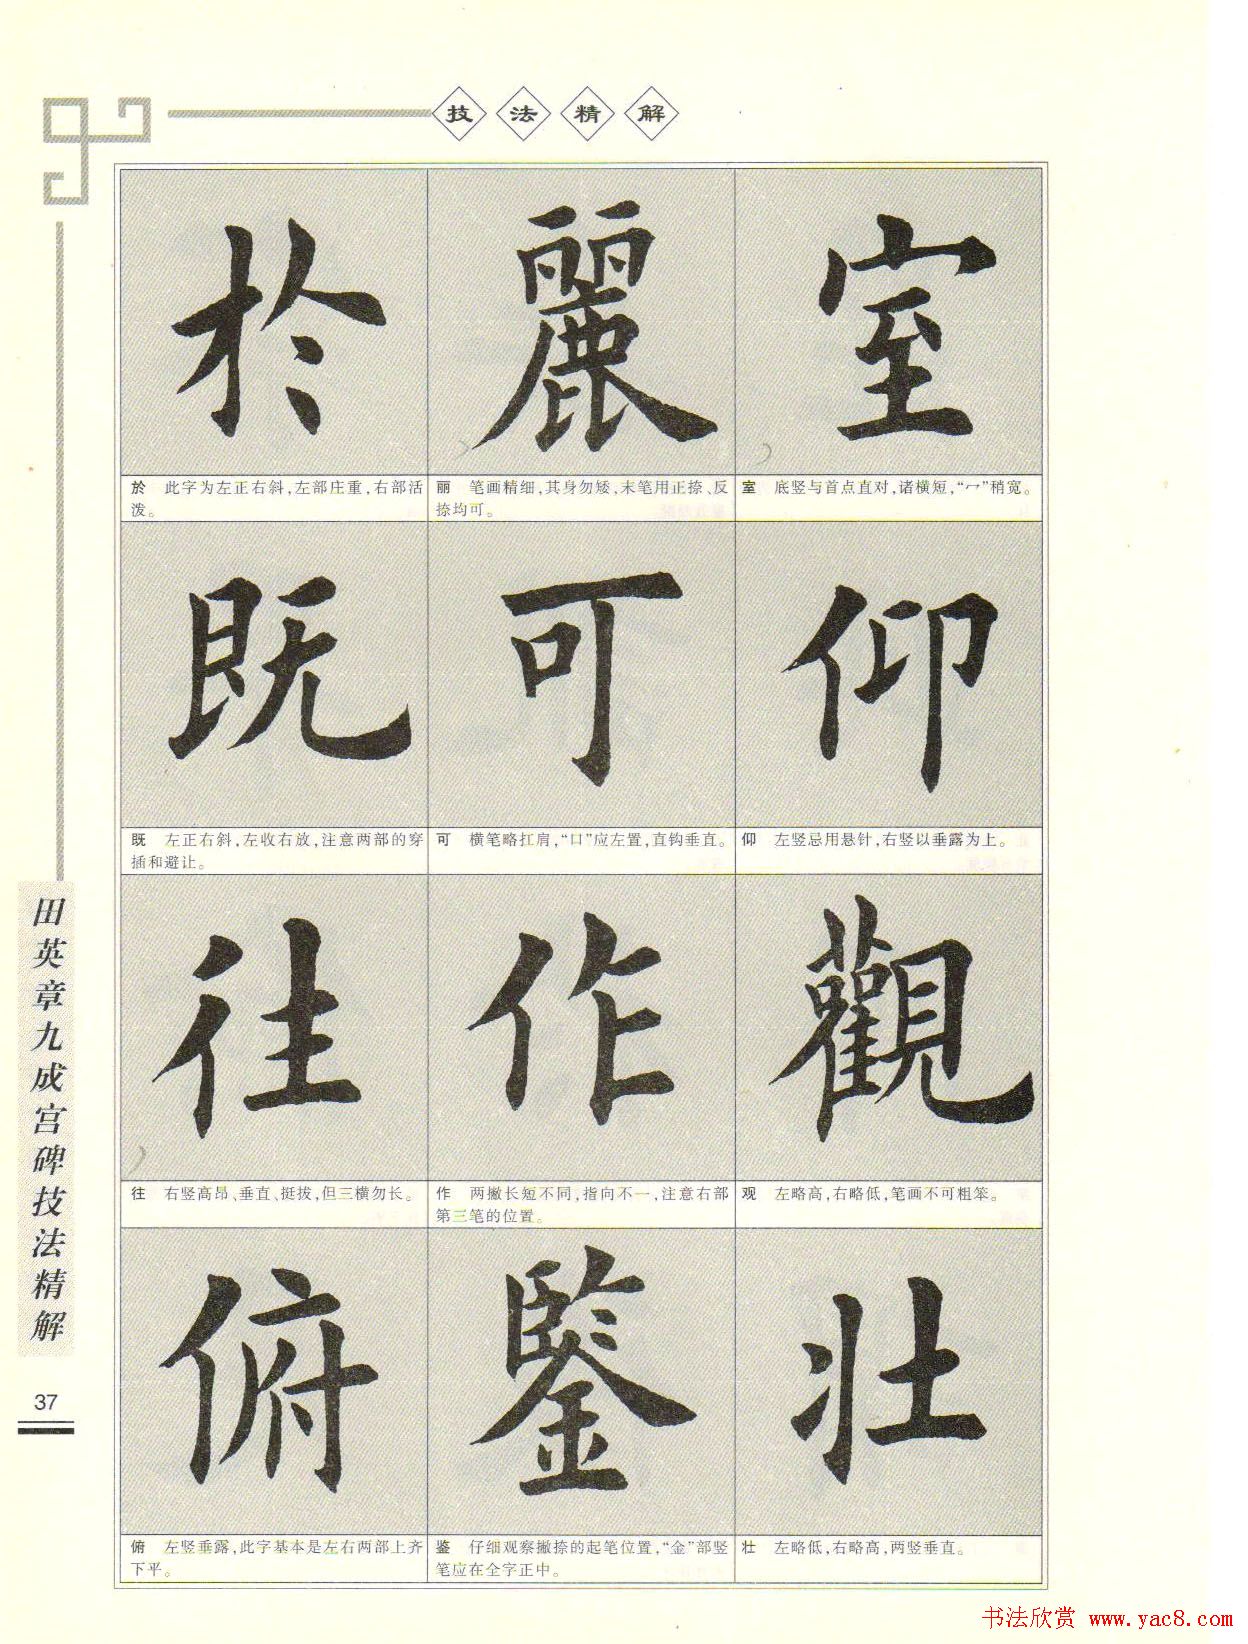 技法精解
於 麗 室
於 此字为左正右斜,左部庄重,右部活
泼。
丽 笔画精细,其身勿矮,末笔用正捺、反
捺均可。
室 底竖与首点直对,诸横短,“冖”稍宽。
既 可 仰
既 左正右斜,左收右放,注意两部的穿
插和避让。
可 横笔略扛肩,“口”应左置,直钩垂直。
仰 左竖忌用悬针,右竖以垂露为上。
往 作 觀
往 右竖高昂、垂直、挺拔,但三横勿长。
作 两撇长短不同,指向不一,注意右部
第三笔的位置。
观 左略高,右略低,笔画不可粗笨。
俯 鑒 壮
俯 左竖垂露,此字基本是左右两部上齐
下平。
鉴 仔细观察撇捺的起笔位置,“金”部竖
笔应在全字正中。
壮 左略低,右略高,两竖垂直。
田英章九成宫碑技法精解
37
书法欣赏 www.yac8.com